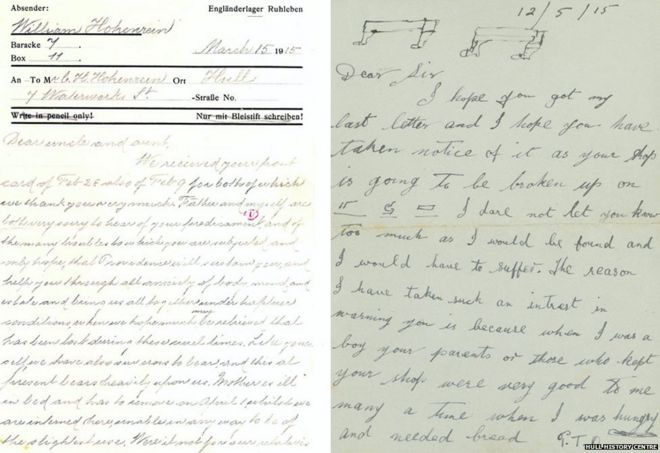 Absender:
Engländerlager Ruhleben
William Hohenrein
Baracke 7
Box 11
March 15 1915
An To Mr C. H. Hohenrein Ort Hull
7 Waterworks St. -Straße No.
Write in pencil only! Nur mit Bleistift schreiben!
Dear uncle and aunt,
We received your post
card of Feb 25 also of Feb 9 for both of which
we thank you very much. Father and myself are
both very sorry to hear of your predicament and of
the many troubles to which you are subjected, and
only hope, that Providence will sustain you, and
help you through all anxiety of body, mind, and
estate and bring us all together under happier
conditions, when we hope much may be retrieved that
has been lost during these cruel times. Like your-
self we have also our cross to bear, and this at
present bears heavily upon us. Mother is ill
in bed and has to remove on April 1, whilst we
are interned here, unable in any way to be of
the slightest use. Were it not for our relatives
12/5/15
Dear Sir
I hope you got my
last letter and I hope you have
taken notice of it as your shop
is going to be broken up on
I dare not let you know
too much as I would be found and
I would have to suffer. The reason
I have taken such an intrest in
warning you is because when I was a
boy your parents or those who kept
your shop were very good to me
many a time when I was hungry
and needed bread
HULL HISTORY CENTRE